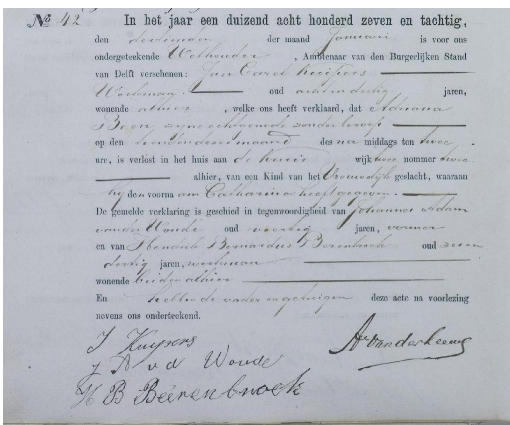 No 42 In het jaar een duizend acht honderd zeven en tachtig,
den dertienden der maand Januari is voor ons
ondergeteekende Wethouder, Ambtenaar van den Burgerlijken Stand
van Delft verschenen: Jan Carel Kuijpers
Werkman oud achtendertig jaren,
wonende alhier, welke ons heeft verklaard, dat Adriana
Boon zijne echtgenoote zonder beroep
op den dezer maand des na middags ten twee
ure, is verlost in het huis aan de wijk twee nommer twee
alhier, van een Kind van het Vrouwelijk geslacht, waaraan
hij den voornaam Catharina heeft gegeven.
De gemelde verklaring is geschied in tegenwoordigheid van Johannes Adam
van der Woude oud veertig jaren, verver
en van Hendrik Bernardus Beerenbroek oud zeven
dertig jaren, werkman
wonende beiden alhier
En hebben de vader en getuigen deze acte na voorlezing
nevens ons onderteekend.
J Kuypers
J A v d Woude
H B Beerenbroek
A. van der Leeuw